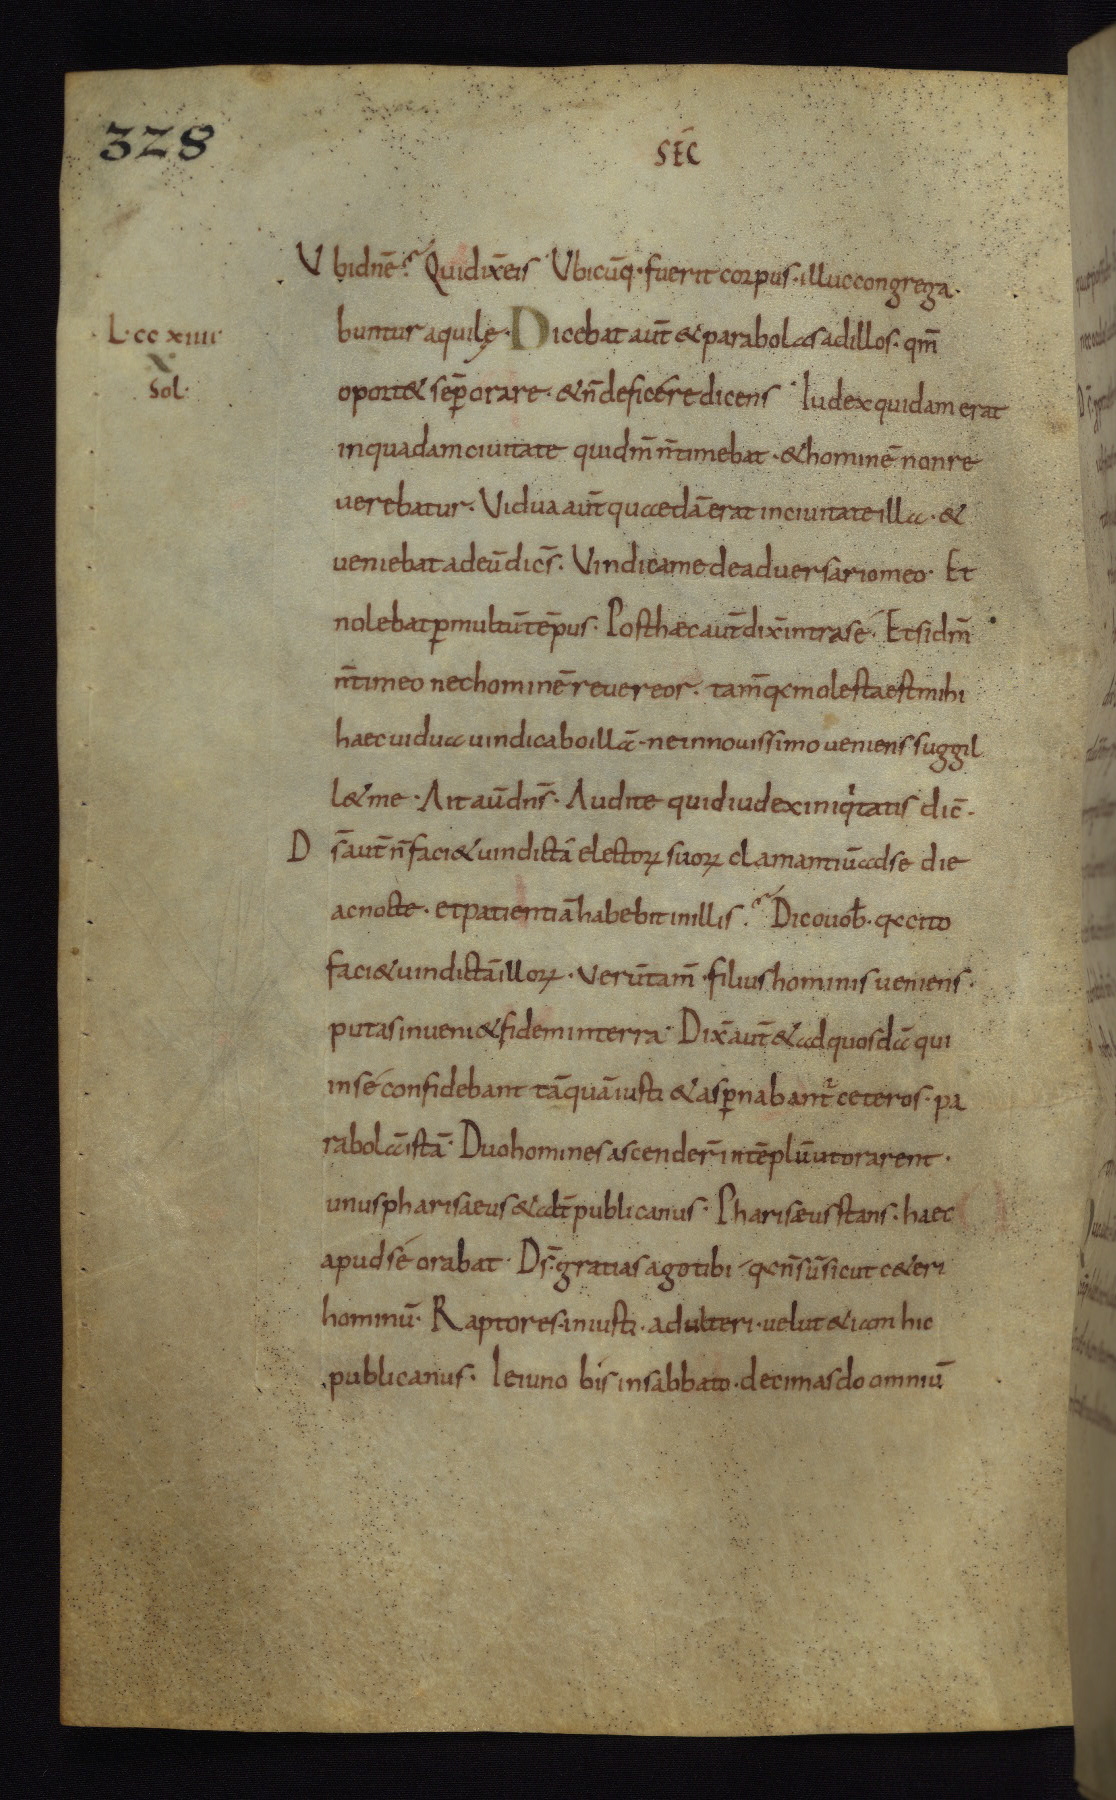 328
SEC̄
Ubidn̄e? Quidix̄eis Ubicūq· fuerit corpus· illuc congrega·
L·ccxiiii·
X·
Sol·
buntur aquilę· Dicebat aut̄ & parabolas adillos· qm̄
oport& sep̄ orare· &n̄ deficere dicens Iudex quidam erat
inquadam ciuitate quidm̄ n̄timebat· & hominē non re
verebatur· Vidua aut̄ quaedā erat inciuitate illa· &
veniebat adeū dics̄· Vindica me deadversario meo· Et
nolebat p̄ multū tēpus· Post haec aut̄ dix̄ intra sé· Et si dm̄
n̄timeo nec hominē revereor· tam̄ q· molesta est mihi
haec vidua vindicabo illā· ne in novissimo veniens suggil
l& me· Ait aū dn̄s· Audite quid iudex iniqitatis dic̄·
Ds̄ aut̄ n̄ faci& vindictā electoꝝ suoꝝ clamantiū adse die
ac nocte· et patientiā habebit inillis? Dico vob̄· q· cito
faci& vindictā illoꝝ· Verūtam̄· filius hominis veniens·
putas inveni& fidem interra· Dix̄ aut̄ & ad quosdā qui
in sé confidebant tāquā iusti & asp̄nabant̄ ceteros· pa
rabolā istā· Duo homines ascender̄ intēplū ut orarent·
unus pharisaeus & alt̄ publicanus· Pharisaeus stans· haec
apud sé orabat· Ds̄ gratias ago tibi q· n̄ sū sicut c&eri
hominū· Raptores· iniusti· adulteri· velut &iam hic
publicanus· Ieiuno bis insabbato· decimas do omniū